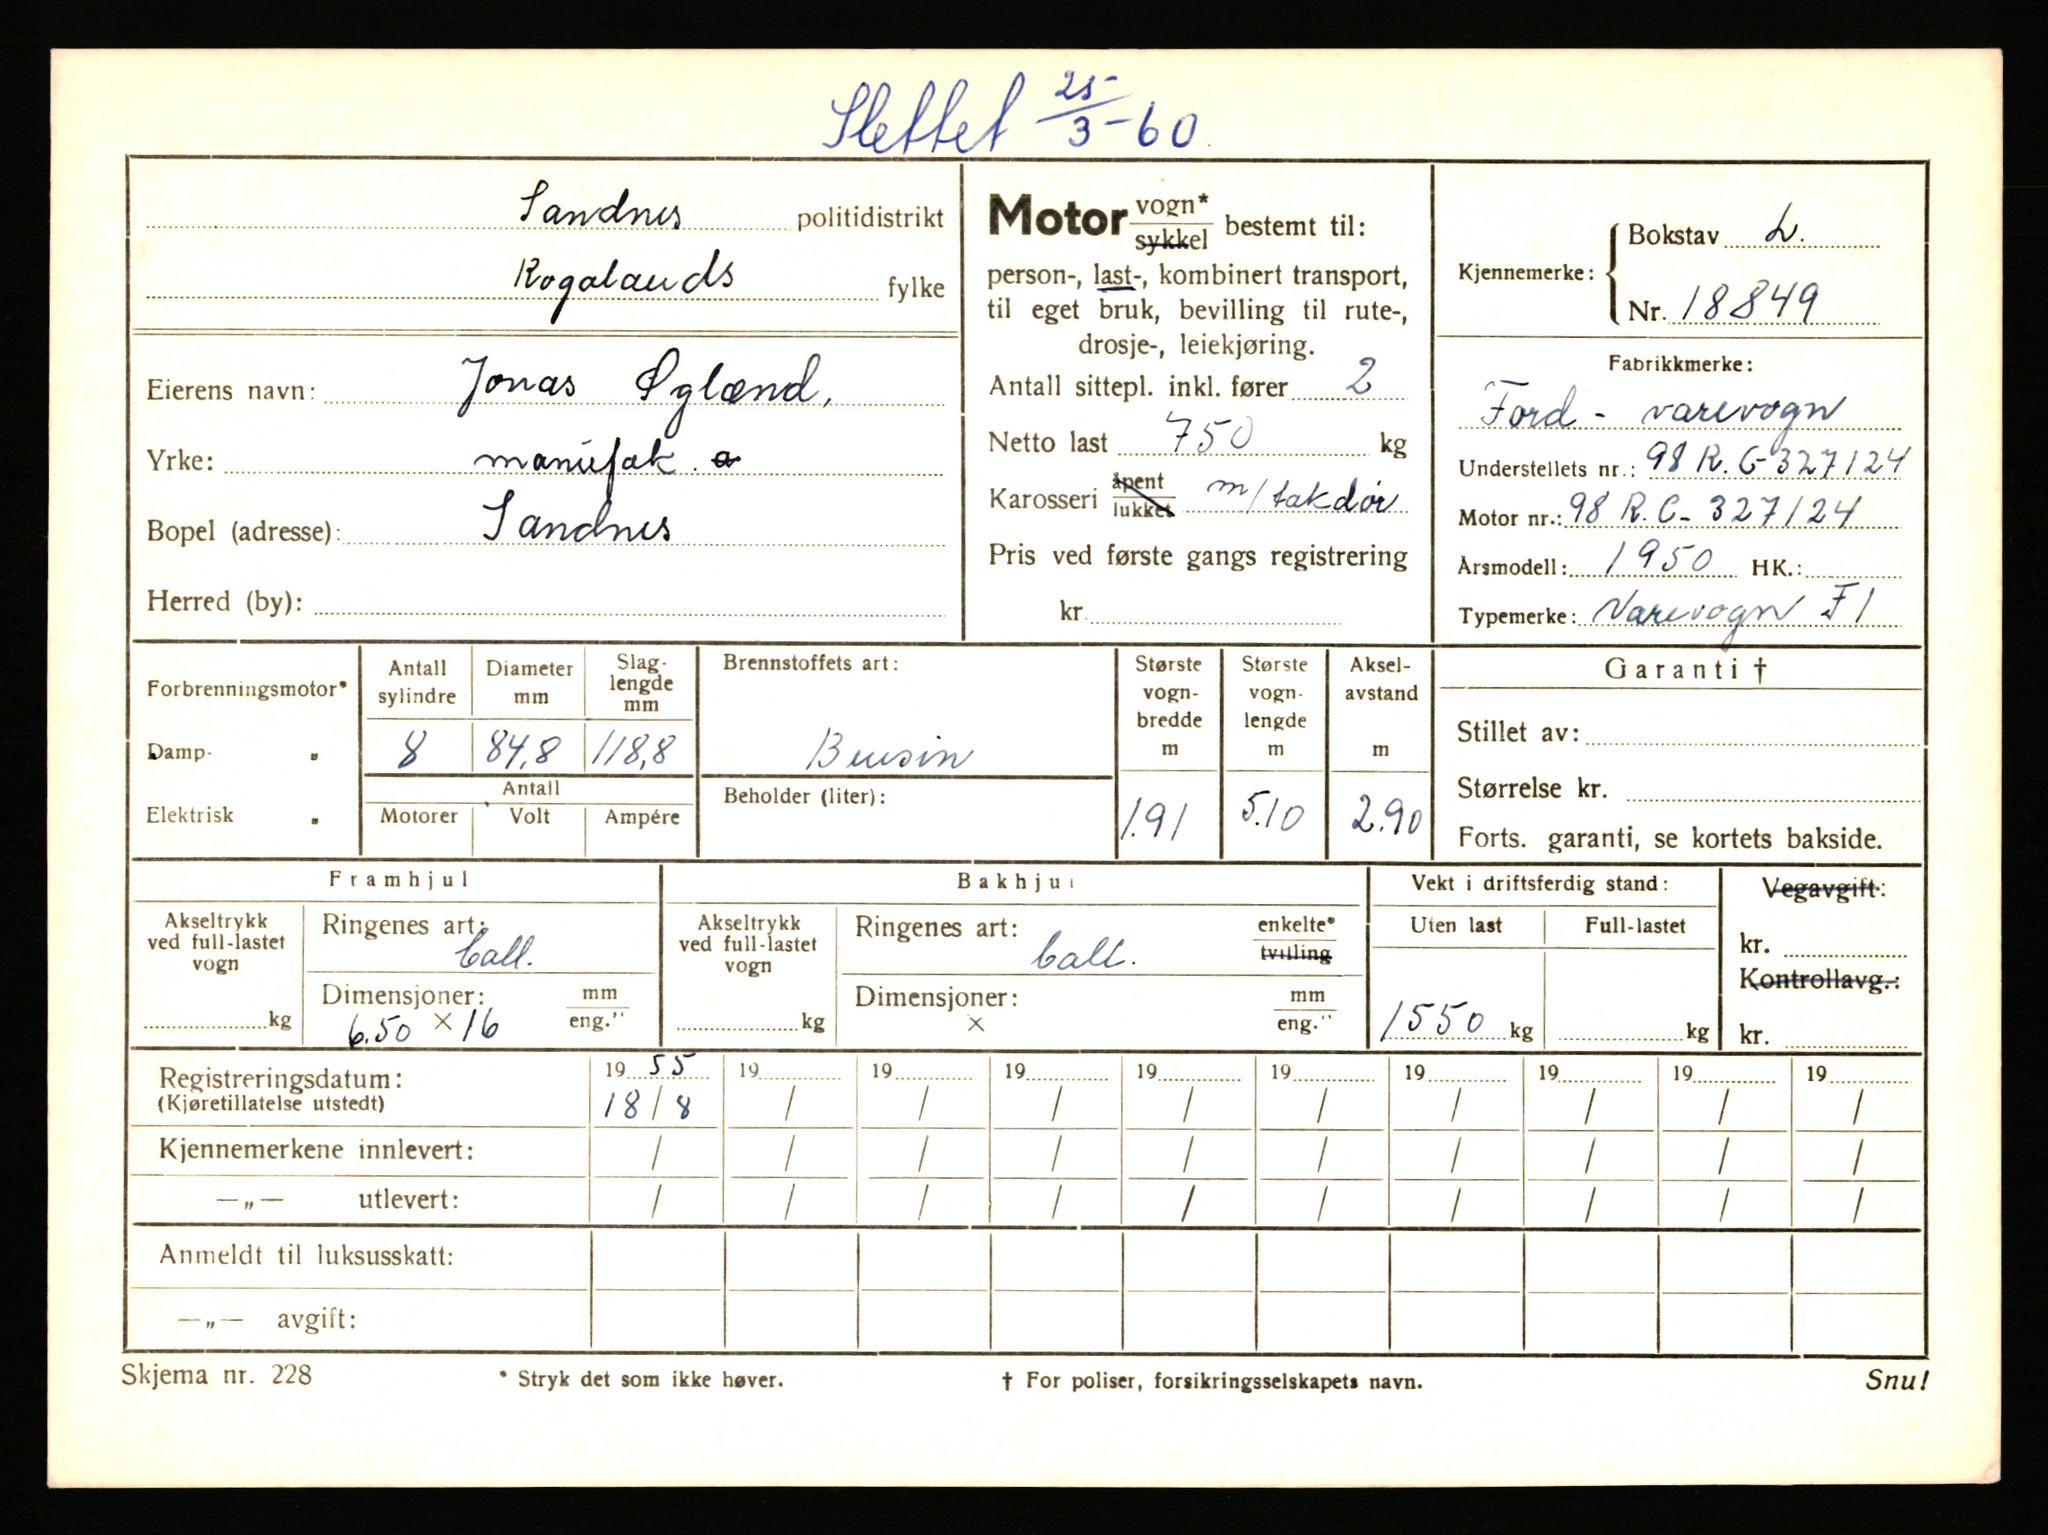 Slettet 25/3-60.
Sandnes politidistrikt
Rogalands fylke
Eierens navn: Jonas Øglænd,
Yrke: manufak.
Bopel (adresse): Sandnes
Herred (by):
Motor vogn* / sykkel bestemt til:
person-, last-, kombinert transport,
til eget bruk, bevilling til rute-,
drosje-, leiekjøring.
Antall sittepl. inkl. fører 2
Netto last 750 kg
Karosseri åpent / lukket m/takdør
Pris ved første gangs registrering
kr.
Kjennemerke: Bokstav L.
Nr. 18849
Fabrikkmerke:
Ford - varevogn
Understellets nr.: 98 R.C-327124
Motor nr.: 98 R.C- 327124
Årsmodell: 1950 HK.:
Typemerke: Varevogn F1
Forbrenningsmotor*
Damp- „
Elektrisk „
Antall sylindre
8
Diameter mm
84,8
Slag-lengde mm
118,8
Antall
Motorer Volt Ampére
Brennstoffets art:
Bensin
Beholder (liter):
Største vogn-bredde m
1.91
Største vogn-lengde m
5.10
Aksel-avstand m
2.90
Garanti †
Stillet av:
Størrelse kr.
Forts. garanti, se kortets bakside.
Framhjul
Akseltrykk ved full-lastet vogn
kg
Ringenes art:
Dimensjoner: mm / eng."
6.50 × 16
Bakhjul
Akseltrykk ved full-lastet vogn
kg
Ringenes art: enkelte* / tvilling
Dimensjoner: mm / eng."
×
Vekt i driftsferdig stand:
Uten last Full-lastet
1550 kg kg
Vegavgift:
kr.
Kontrollavg.:
kr.
Registreringsdatum: 19 55 19 19 19 19 19 19 19 19 19
(Kjøretillatelse utstedt) 18/8 / / / / / / / / /
Kjennemerkene innlevert: / / / / / / / / / /
—„— utlevert: / / / / / / / / / /
Anmeldt til luksusskatt:
—„— avgift:
Skjema nr. 228 * Stryk det som ikke høver. † For poliser, forsikringsselskapets navn. Snu!